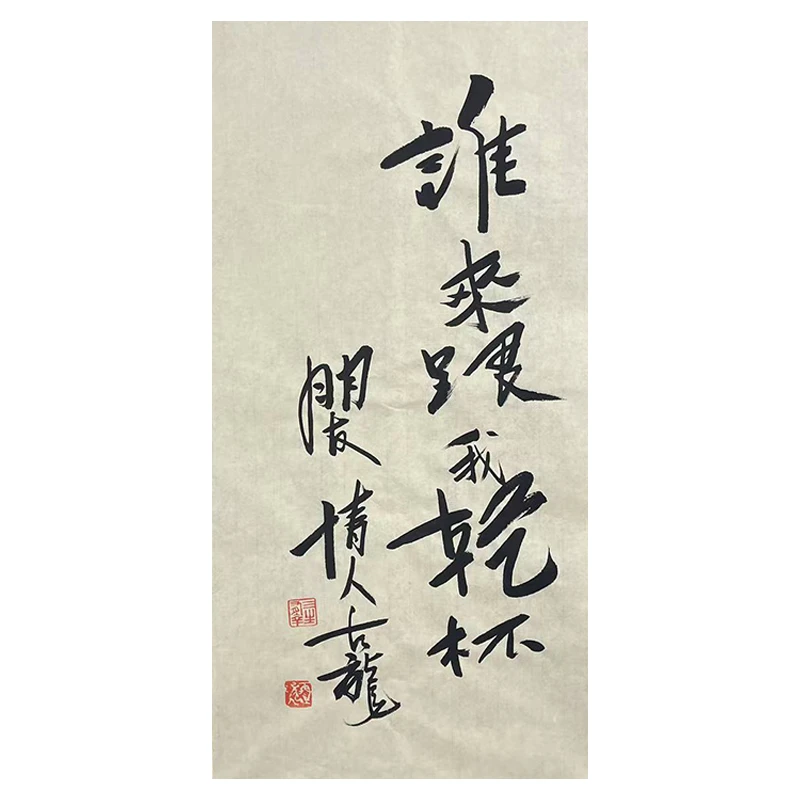 誰來跟我乾杯
朋友情人古龍